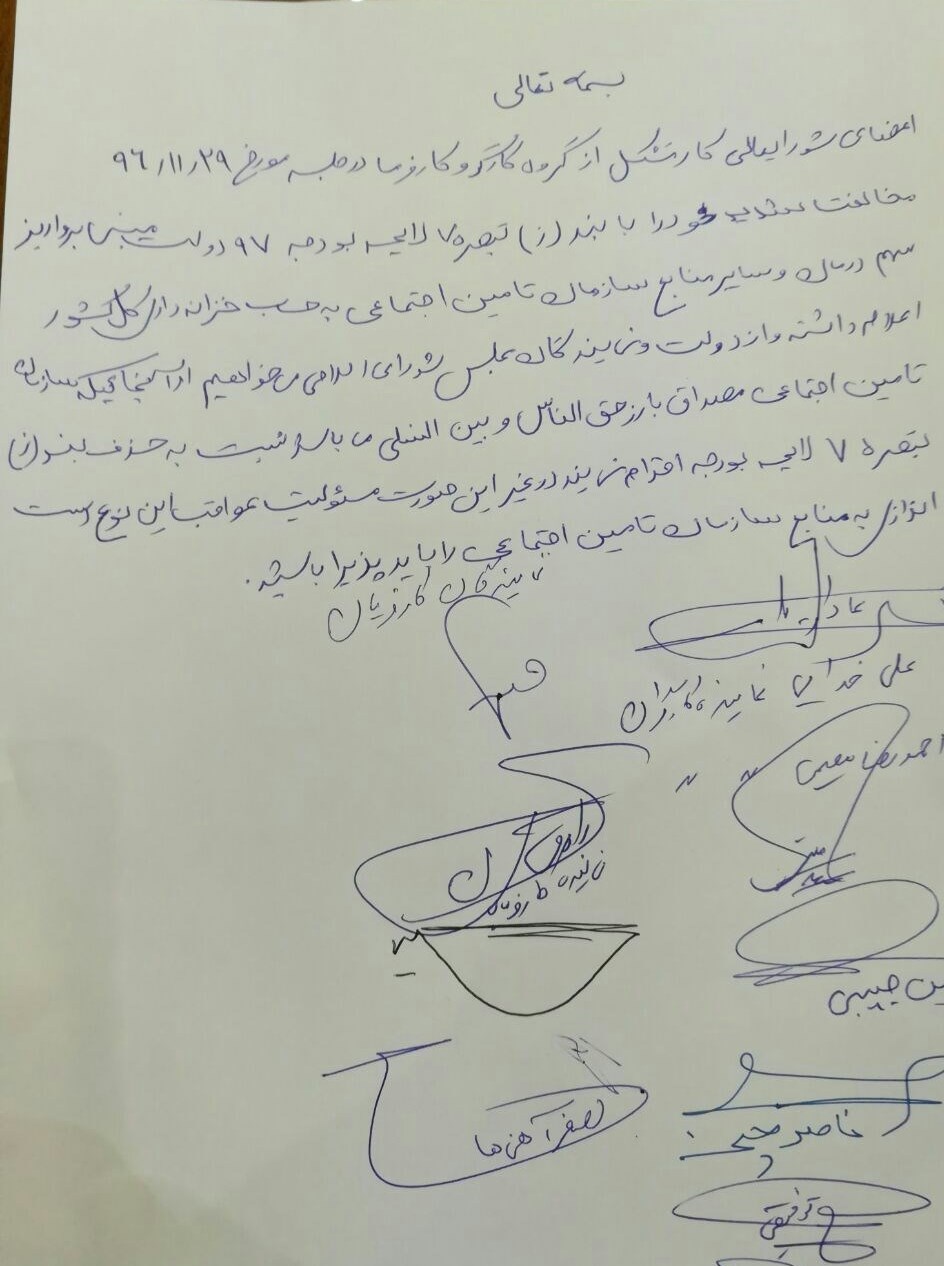 بسمه تعالی
اعضای شورایعالی کار متشکل از گروه کارگر و کارفرما در جلسه مورخ ۹۶/۱۱/۲۹
مخالفت شدید خود را با بند (ز) تبصره ۷ لایحه بودجه ۹۷ دولت مبنی بر واریز
سهم درمان و سایر منابع سازمان تامین اجتماعی به حساب خزانه داری کل کشور
اعلام داشته و از دولت و نمایندگان مجلس شورای اسلامی می خواهیم از آنجائیکه سازمان
تامین اجتماعی مصداق بارز حق الناس و بین النسلی می باشد نسبت به حذف بند (ز)
تبصره ۷ لایحه بودجه اقدام نمایند در غیر این صورت مسئولیت عواقب این نوع دست
اندازی به منابع سازمان تامین اجتماعی را باید پذیرا باشید.
نمایندگان کارفرمایان
علی خدایی نماینده کارگران
احمدرضا معینی " "
نماینده کارفرما
حبیبی
اصغر آهنی ها
ناصر چمنی
توفیقی